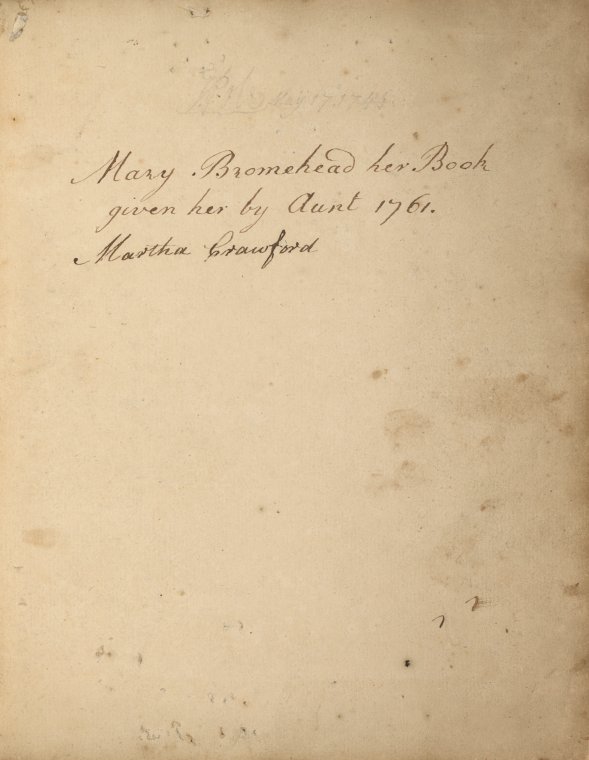 May 17 1744
Mary Bromehead her Book
given her by Aunt 1761.
Martha Crawford